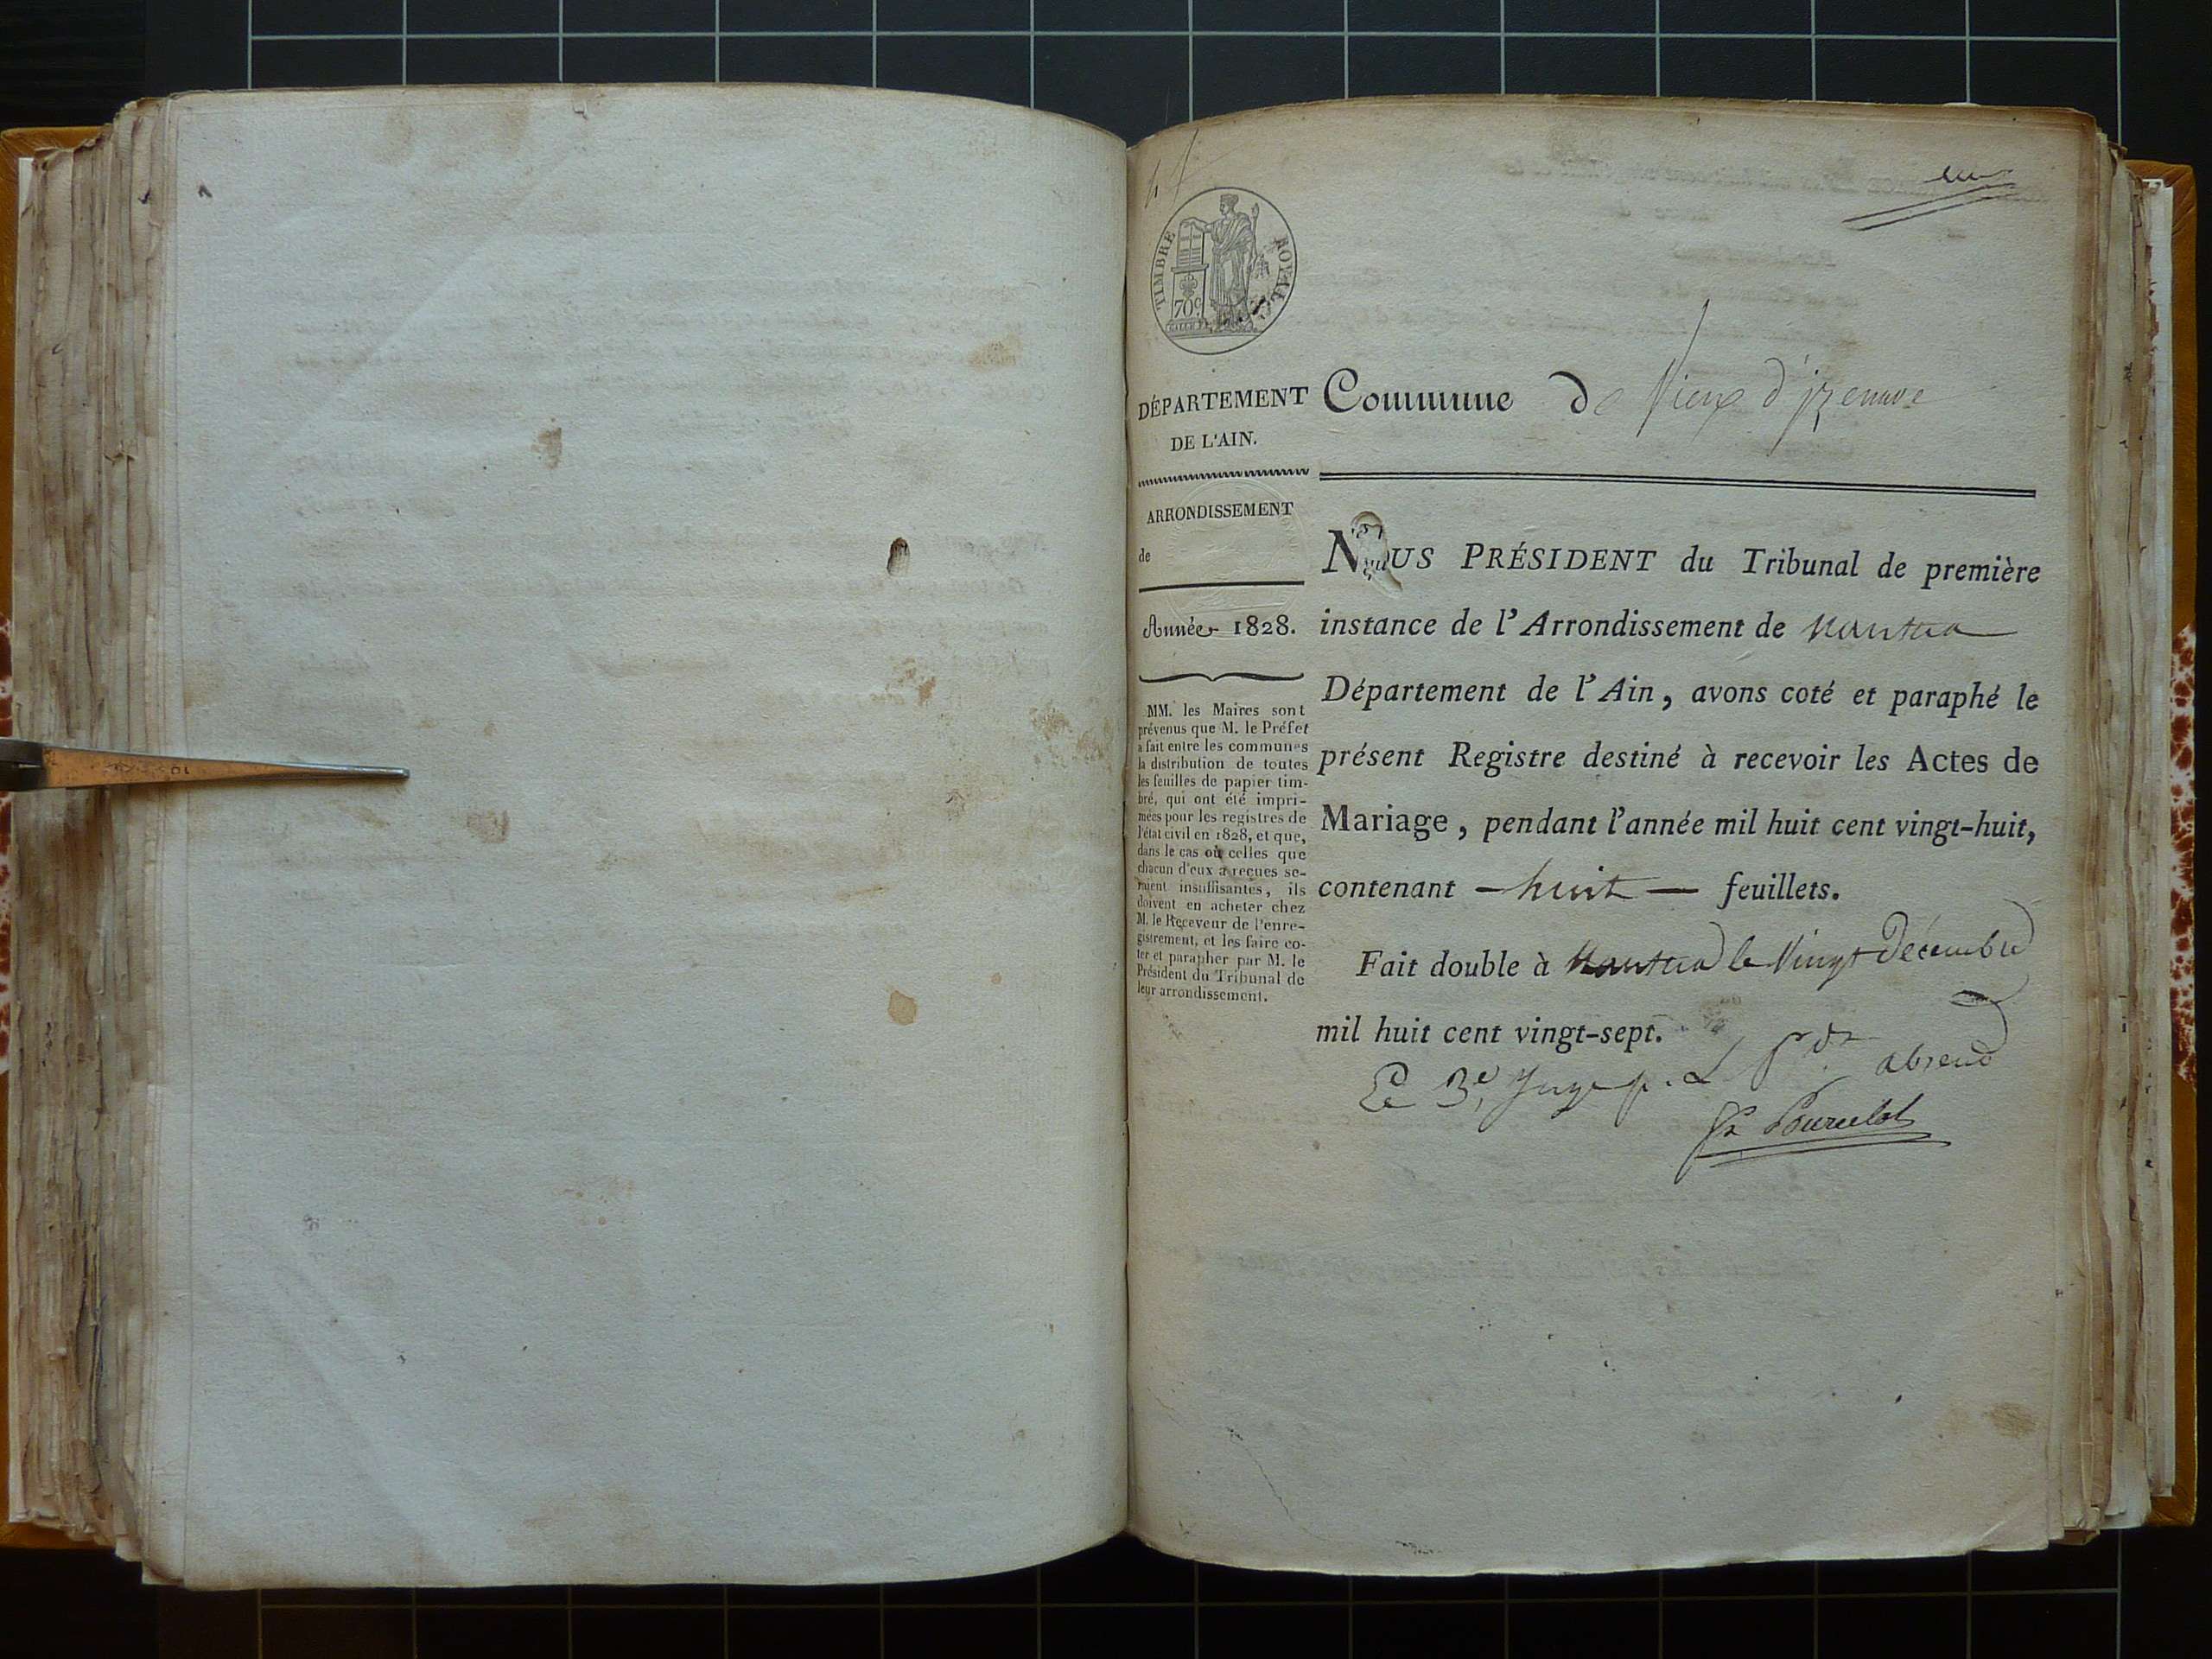 TIMBRE ROYAL
70c
DÉPARTEMENT
DE L'AIN.
ARRONDISSEMENT
de
Année 1828.
MM. les Maires sont
prévenus que M. le Préfet
a fait entre les communes
la distribution de toutes
les feuilles de papier tim-
bré, qui ont été impri-
mées pour les registres de
l'état civil en 1828, et que,
dans le cas où celles que
chacun d'eux a reçues se-
raient insuffisantes, ils
doivent en acheter chez
M. le Receveur de l'enre-
gistrement, et les faire co-
ter et parapher par M. le
Président du Tribunal de
leur arrondissement.
Commune de Vieux d'izenave
NOUS PRÉSIDENT du Tribunal de première
instance de l'Arrondissement de Nantua
Département de l'Ain, avons coté et paraphé le
présent Registre destiné à recevoir les Actes de
Mariage, pendant l'année mil huit cent vingt-huit,
contenant — huit — feuillets.
Fait double à Nantua le Vingt Décembre
mil huit cent vingt-sept.
Le 3e Juge p. Le absent